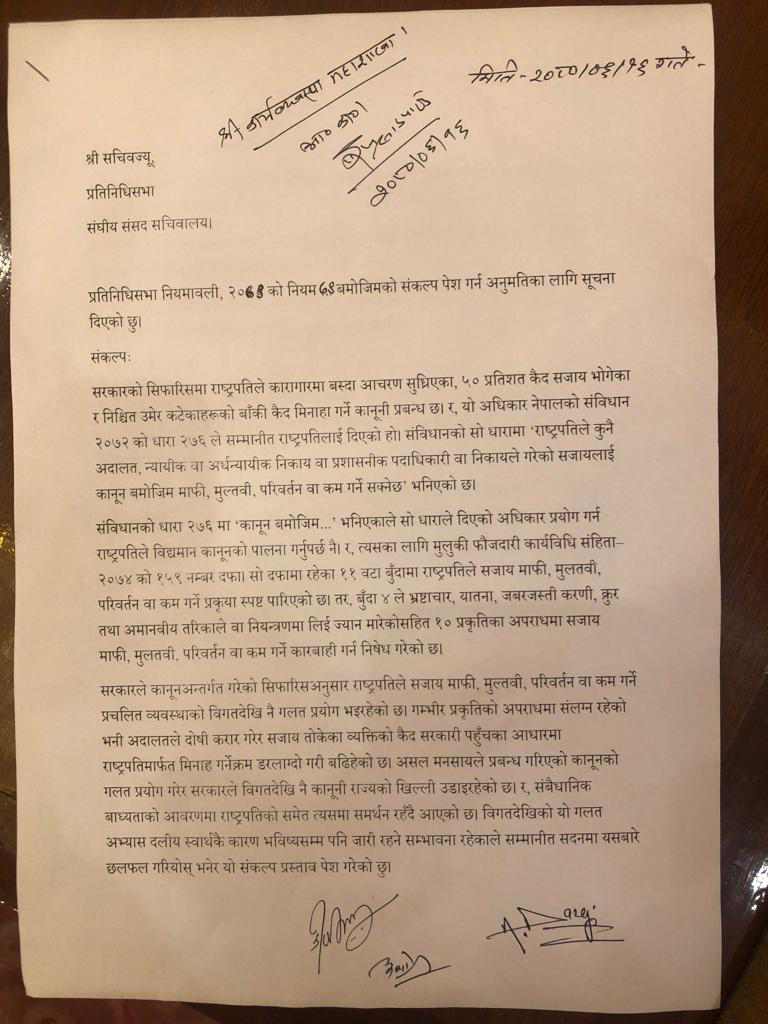 मिति - २०८०/०६/१६ गते -
श्री महाशाखा ।
२०८०/०६/१६
श्री सचिवज्यू,
प्रतिनिधिसभा
संघीय संसद सचिवालय।
प्रतिनिधिसभा नियमावली, २०७९ को नियम ७९ बमोजिमको संकल्प पेश गर्न अनुमतिका लागि सूचना
दिएको छु।
संकल्पः
सरकारको सिफारिसमा राष्ट्रपतिले कारागारमा बस्दा आचरण सुध्रिएका, ५० प्रतिशत कैद सजाय भोगेका
र निश्चित उमेर कटेकाहरूको बाँकी कैद मिनाहा गर्ने कानूनी प्रबन्ध छ। र, यो अधिकार नेपालको संविधान
२०७२ को धारा २७६ ले सम्मानीत राष्ट्रपतिलाई दिएको हो। संविधानको सो धारामा 'राष्ट्रपतिले कुनै
अदालत, न्यायीक वा अर्धन्यायीक निकाय वा प्रशासनीक पदाधिकारी वा निकायले गरेको सजायलाई
कानून बमोजिम माफी, मुल्तवी, परिवर्तन वा कम गर्ने सक्नेछ' भनिएको छ।
संविधानको धारा २७६ मा 'कानून बमोजिम...' भनिएकाले सो धाराले दिएको अधिकार प्रयोग गर्न
राष्ट्रपतिले विद्यमान कानूनको पालना गर्नुपर्छ नै। र, त्यसका लागि मुलुकी फौजदारी कार्यविधि संहिता–
२०७४ को १५९ नम्बर दफा। सो दफामा रहेका ११ वटा बुँदामा राष्ट्रपतिले सजाय माफी, मुलतवी,
परिवर्तन वा कम गर्ने प्रकृया स्पष्ट पारिएको छ। तर, बुँदा ४ ले भ्रष्टाचार, यातना, जबरजस्ती करणी, क्रुर
तथा अमानवीय तरिकाले वा नियन्त्रणमा लिई ज्यान मारेकोसहित १० प्रकृतिका अपराधमा सजाय
माफी, मुलतवी. परिवर्तन वा कम गर्ने कारबाही गर्न निषेध गरेको छ।
सरकारले कानूनअन्तर्गत गरेको सिफारिसअनुसार राष्ट्रपतिले सजाय माफी, मुल्तवी, परिवर्तन वा कम गर्ने
प्रचलित व्यवस्थाको विगतदेखि नै गलत प्रयोग भइरहेको छ। गम्भीर प्रकृतिको अपराधमा संलग्न रहेको
भनी अदालतले दोषी करार गरेर सजाय तोकेका व्यक्तिको कैद सरकारी पहुँचका आधारमा
राष्ट्रपतिमार्फत मिनाह गर्नेक्रम डरलाग्दो गरी बढिहेको छ। असल मनसायले प्रबन्ध गरिएको कानूनको
गलत प्रयोग गरेर सरकारले विगतदेखि नै कानूनी राज्यको खिल्ली उडाइरहेको छ। र, संबैधानिक
बाध्यताको आवरणमा राष्ट्रपतिको समेत त्यसमा समर्थन रहँदै आएको छ। विगतदेखिको यो गलत
अभ्यास दलीय स्वार्थकै कारण भविष्यसम्म पनि जारी रहने सम्भावना रहेकाले सम्मानीत सदनमा यसबारे
छलफल गरियोस् भनेर यो संकल्प प्रस्ताव पेश गरेको छु।